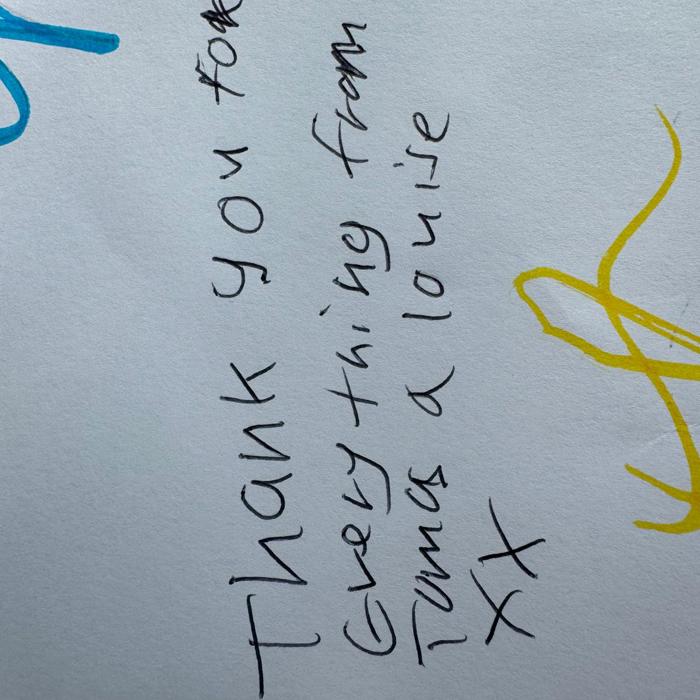 Thank you for
Everything from
Tomas a louise
XX